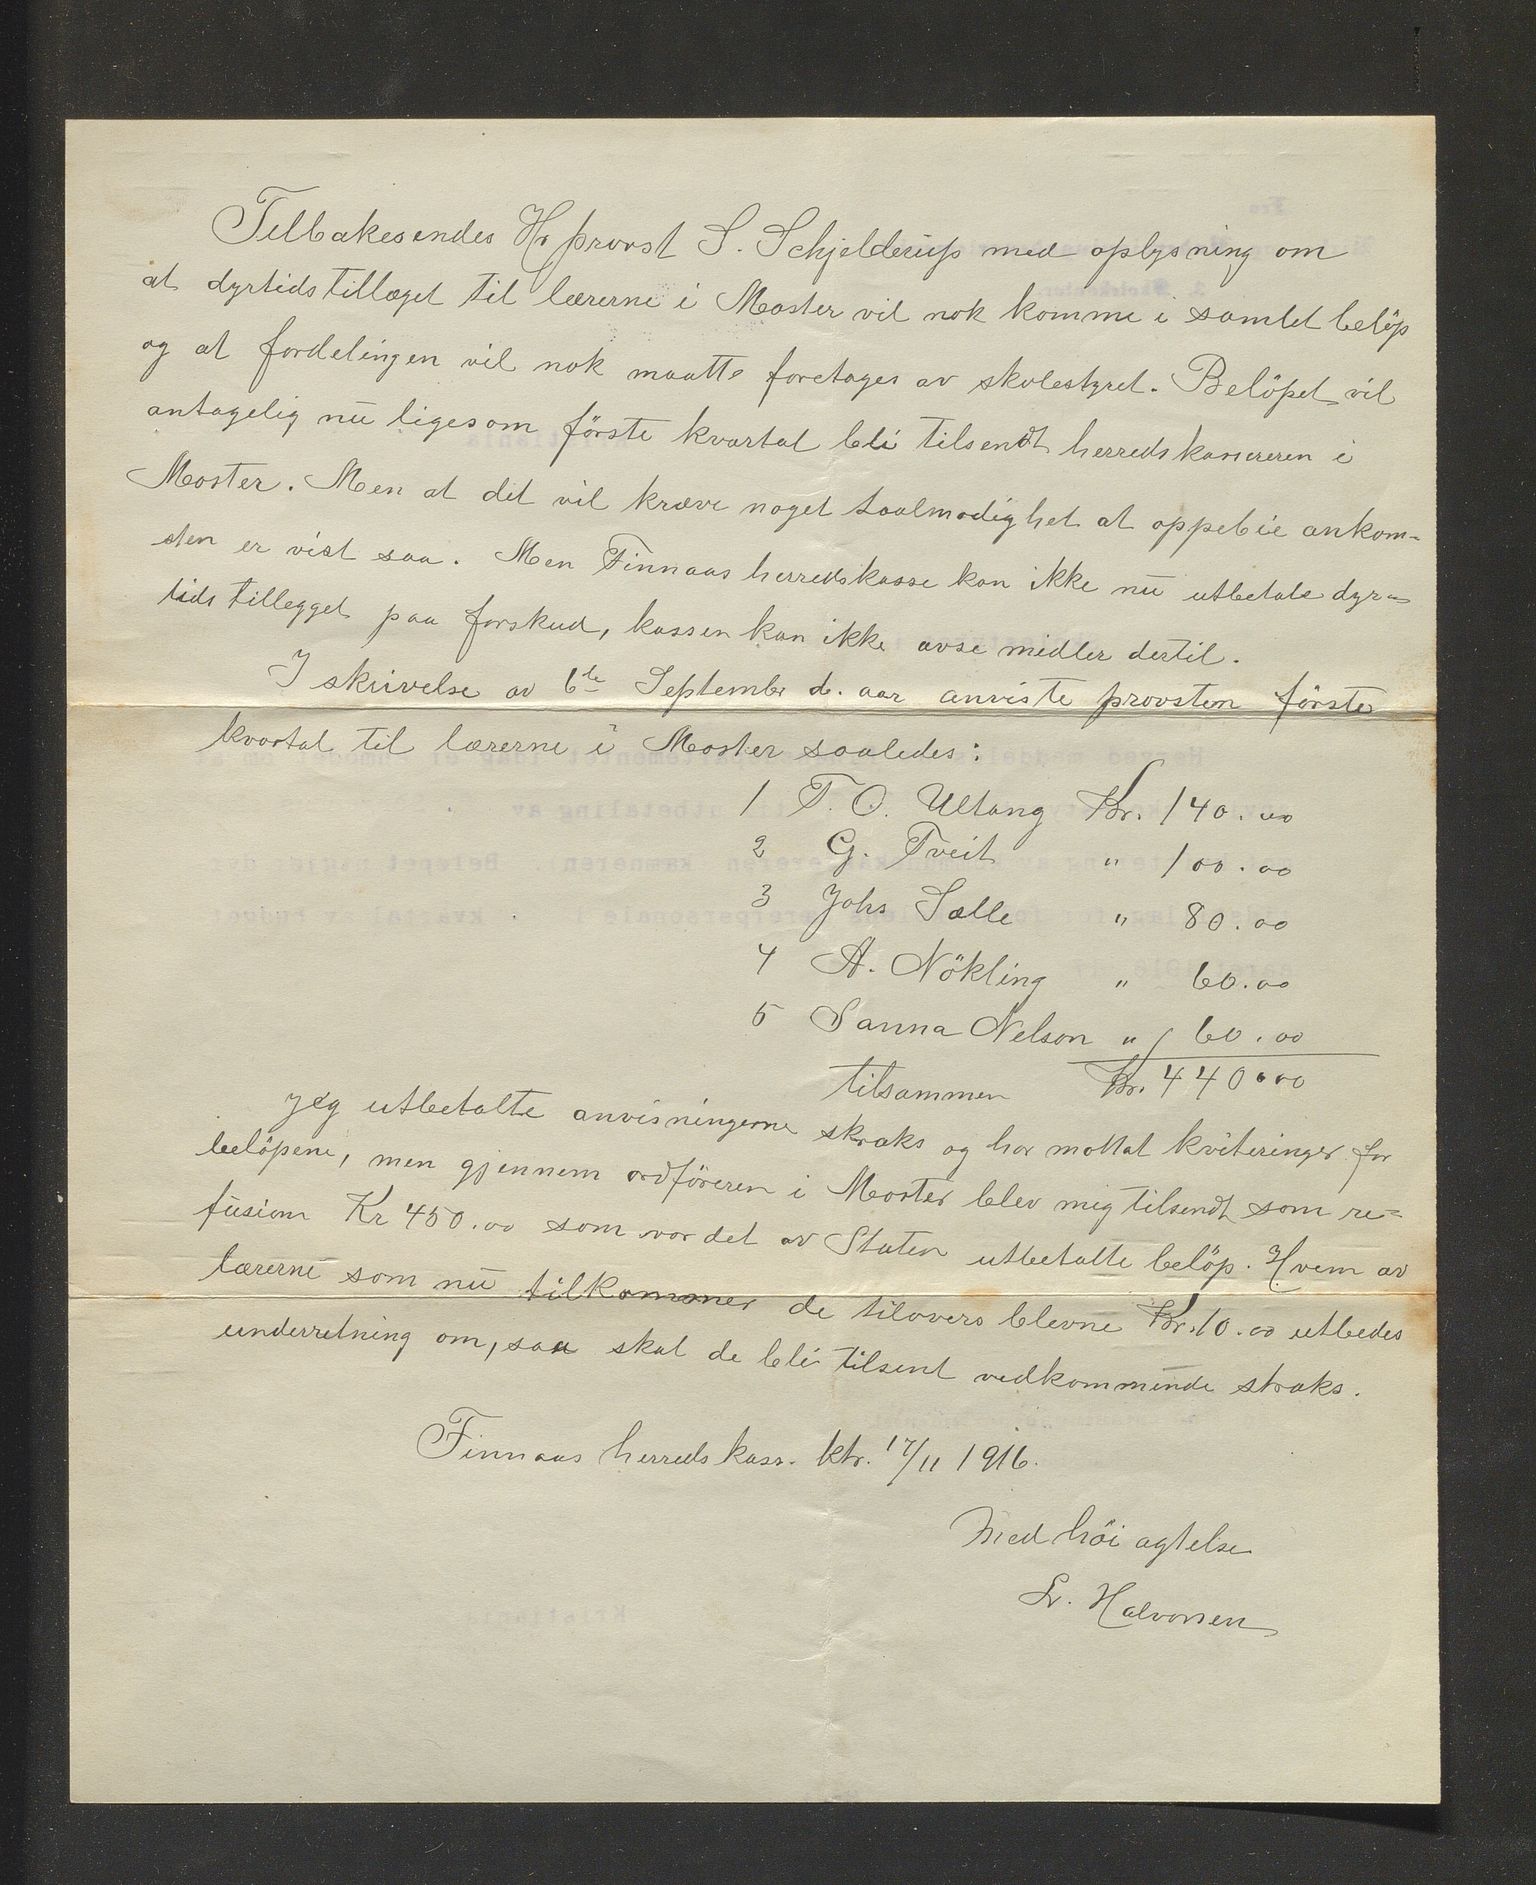 Tilbakesendes Hr provst S. Schjelderup med oplysning om
at dyrtidstillæget til lærerne i Moster vil nok komme i samlet beløp
og at fordelingen vil nok maatte foretages av skolestyret. Belöpet vil
antagelig nu ligesom förste kvartal bli tilsendt herredskassereren i
Moster. Men at det vil kræve noget taalmodighet at oppebie ankom-
sten er vist saa. Men Finnaas herredskasse kan ikke nu utbetale dyr-
tidstillegget paa forskud, kassen kan ikke avse midler dertil.
I skrivelse av 6te September d. aar anviste provsten förste
kvartal til lærerne i Moster saaledes:
1 T. O. Ultang Kr. 140.00
2 G. Tveit " 100.00
3 Johs Sælle " 80.00
4 A. Nökling " 60.00
5 Sanna Nelson " 60.00
tilsammen Kr. 440.00
Jeg utbetalte anvisningerne straks og har mottat kviteringer for
belöpene, men gjennem ordföreren i Moster blev mig tilsendt som re-
fusion Kr 450.00 som var det av Staten utbetalte belöp. Hvem av
lærerne som nu tilkommer de tilovers blevne Kr. 10.00 utbedes
underretning om, saa skal de bli tilsent vedkommende straks.
Finnaas herredskass. ktr. 17/11 1916.
Med höi agtelse
Sv. Halvorsen